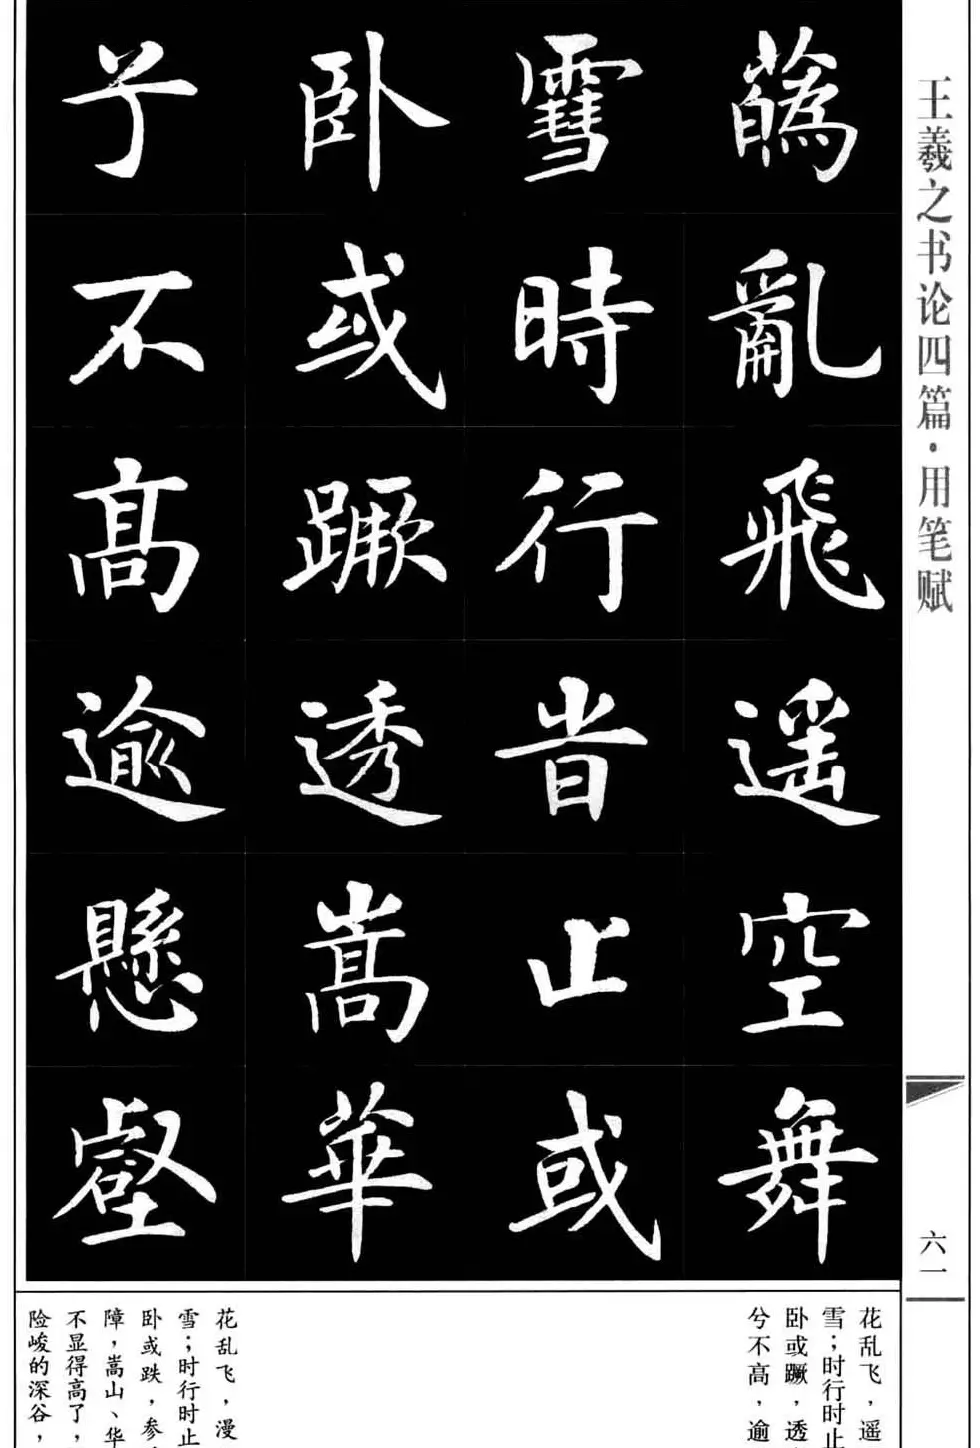 王羲之书论四篇·用笔赋
六一
蘤亂飛遥空舞
雪時行旹止或
卧或蹶透嵩華
兮不高逾懸壑
花乱飞，遥
雪；时行时止
卧或蹶，透
兮不高，逾
花乱飞，漫
雪；时行时止
卧或跌，参
障，嵩山、华
不显得高了，
险峻的深谷，